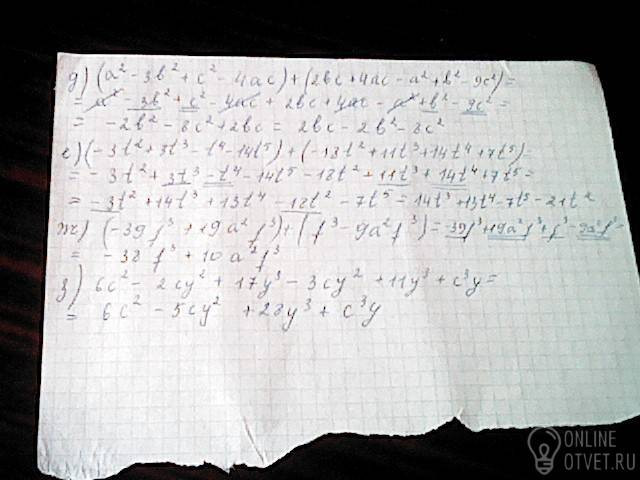 д) (a² - 3b² + c² - 4ac) + (2bc + 4ac - a² + b² - 9c²) =
= a² - 3b² + c² - 4ac + 2bc + 4ac - a² + b² - 9c² =
= -2b² - 8c² + 2bc = 2bc - 2b² - 8c²
е) (-3t² + 3t³ - t⁴ - 14t⁵) + (-18t² + 11t³ + 14t⁴ + 7t⁵) =
= -3t² + 3t³ - t⁴ - 14t⁵ - 18t² + 11t³ + 14t⁴ + 7t⁵ =
= -3t² + 14t³ + 13t⁴ - 18t² - 7t⁵ = 14t³ + 13t⁴ - 7t⁵ - 21t²
ж) (-39f³ + 19a²f³) + (f³ - 9a²f³) = -39f³ + 19a²f³ + f³ - 9a²f³ =
= -38f³ + 10a²f³
з) 6c² - 2cy² + 17y³ - 3cy² + 11y³ + c³y =
= 6c² - 5cy² + 28y³ + c³y
ONLINE
OTVET.RU